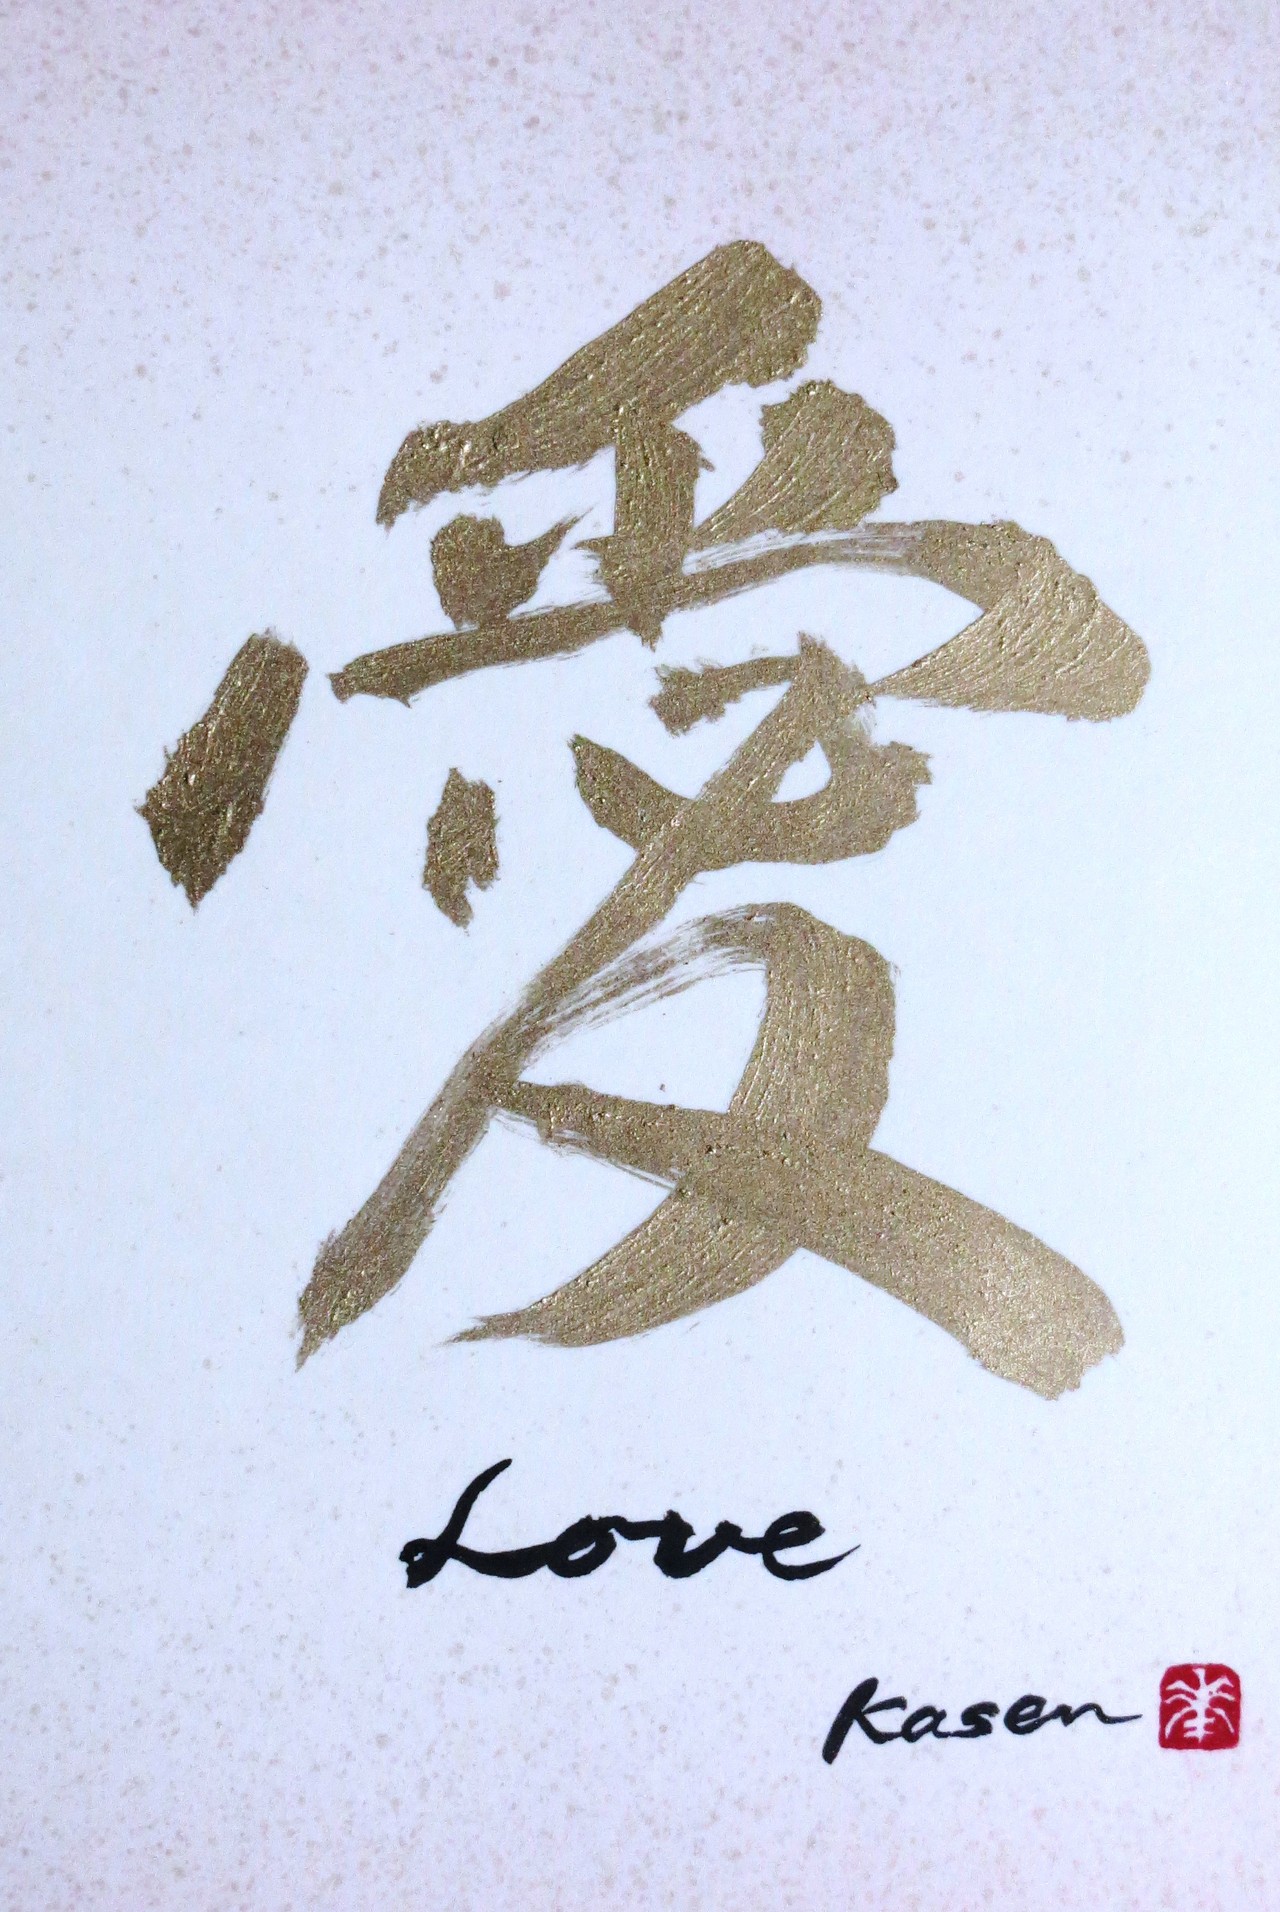 愛
Love
Kasen